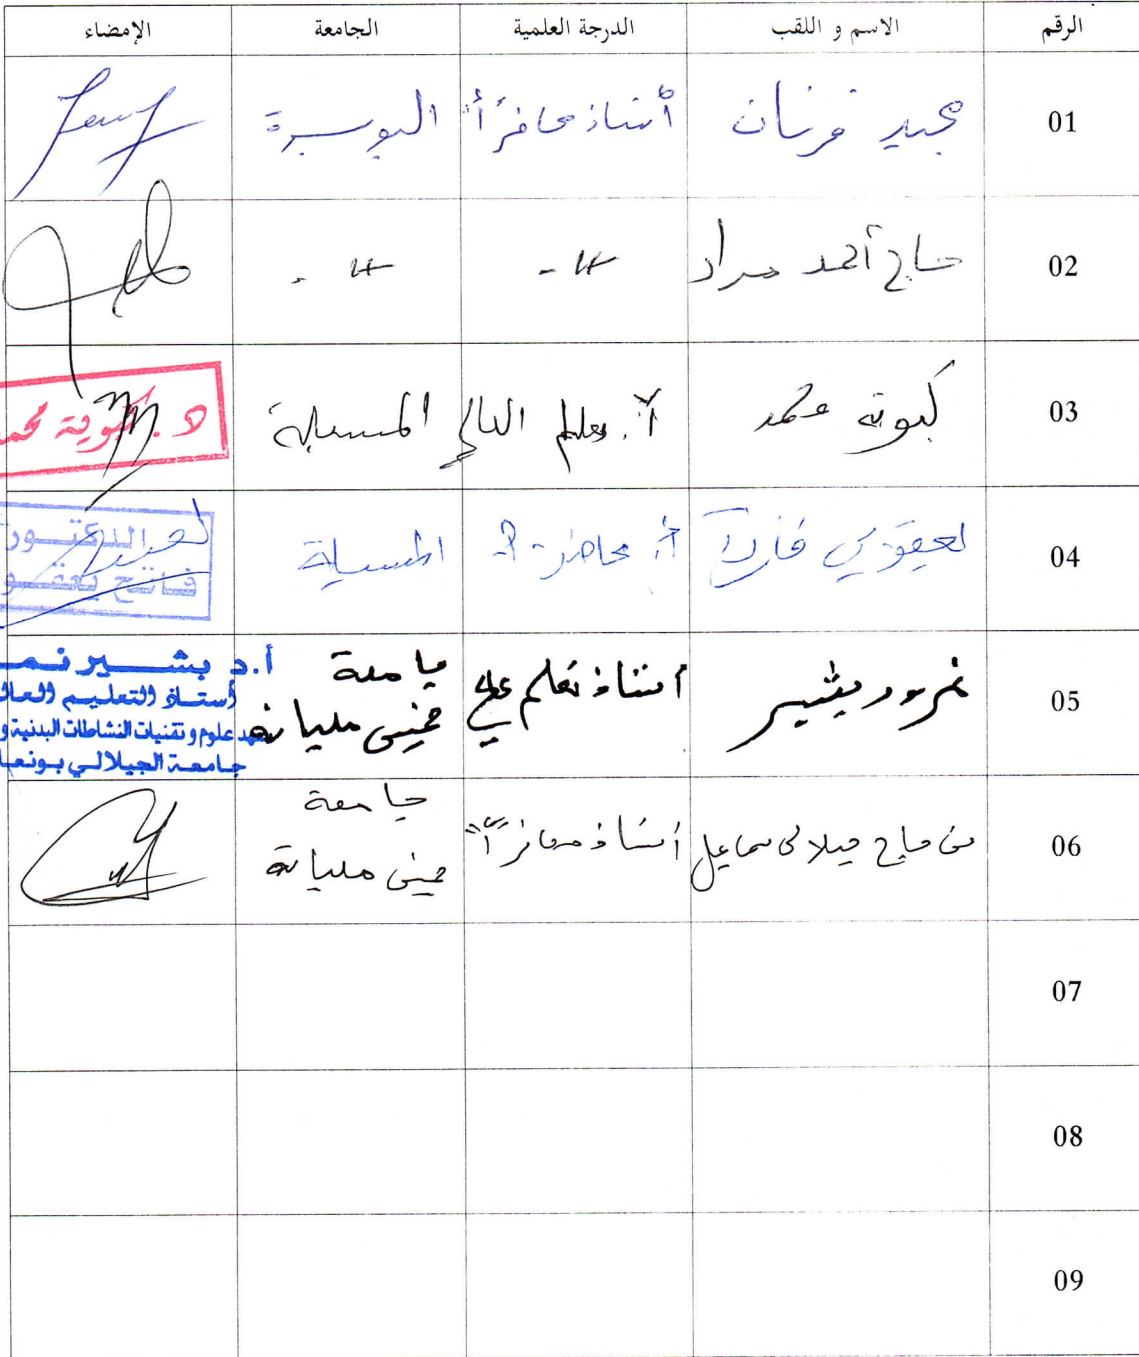 الرقم الاسم و اللقب الدرجة العلمية الجامعة الإمضاء
01 مجيد فرنان أستاذ محاضر "أ" البويرة
02 حاج أحمد مراد -//- -//-
03 كبوية محمد أ. تعليم العالي المسيلة
د. كبوية محمد
04 يعقوبي فاتح أ. محاضر - أ المسيلة
الدكتور
فاتح يعقو
05 نمرود بشير أستاذ تعليم عالي جامعة
خميس مليانة
أ.د بشير نمـ
أستاذ التعليم العالـ
علوم و تقنيات النشاطات البدنية و
جامعة الجيلالي بونعا
06 بن حاج جيلالي سماعيل أستاذ محاضر "أ" جامعة
خميس مليانة
07
08
09